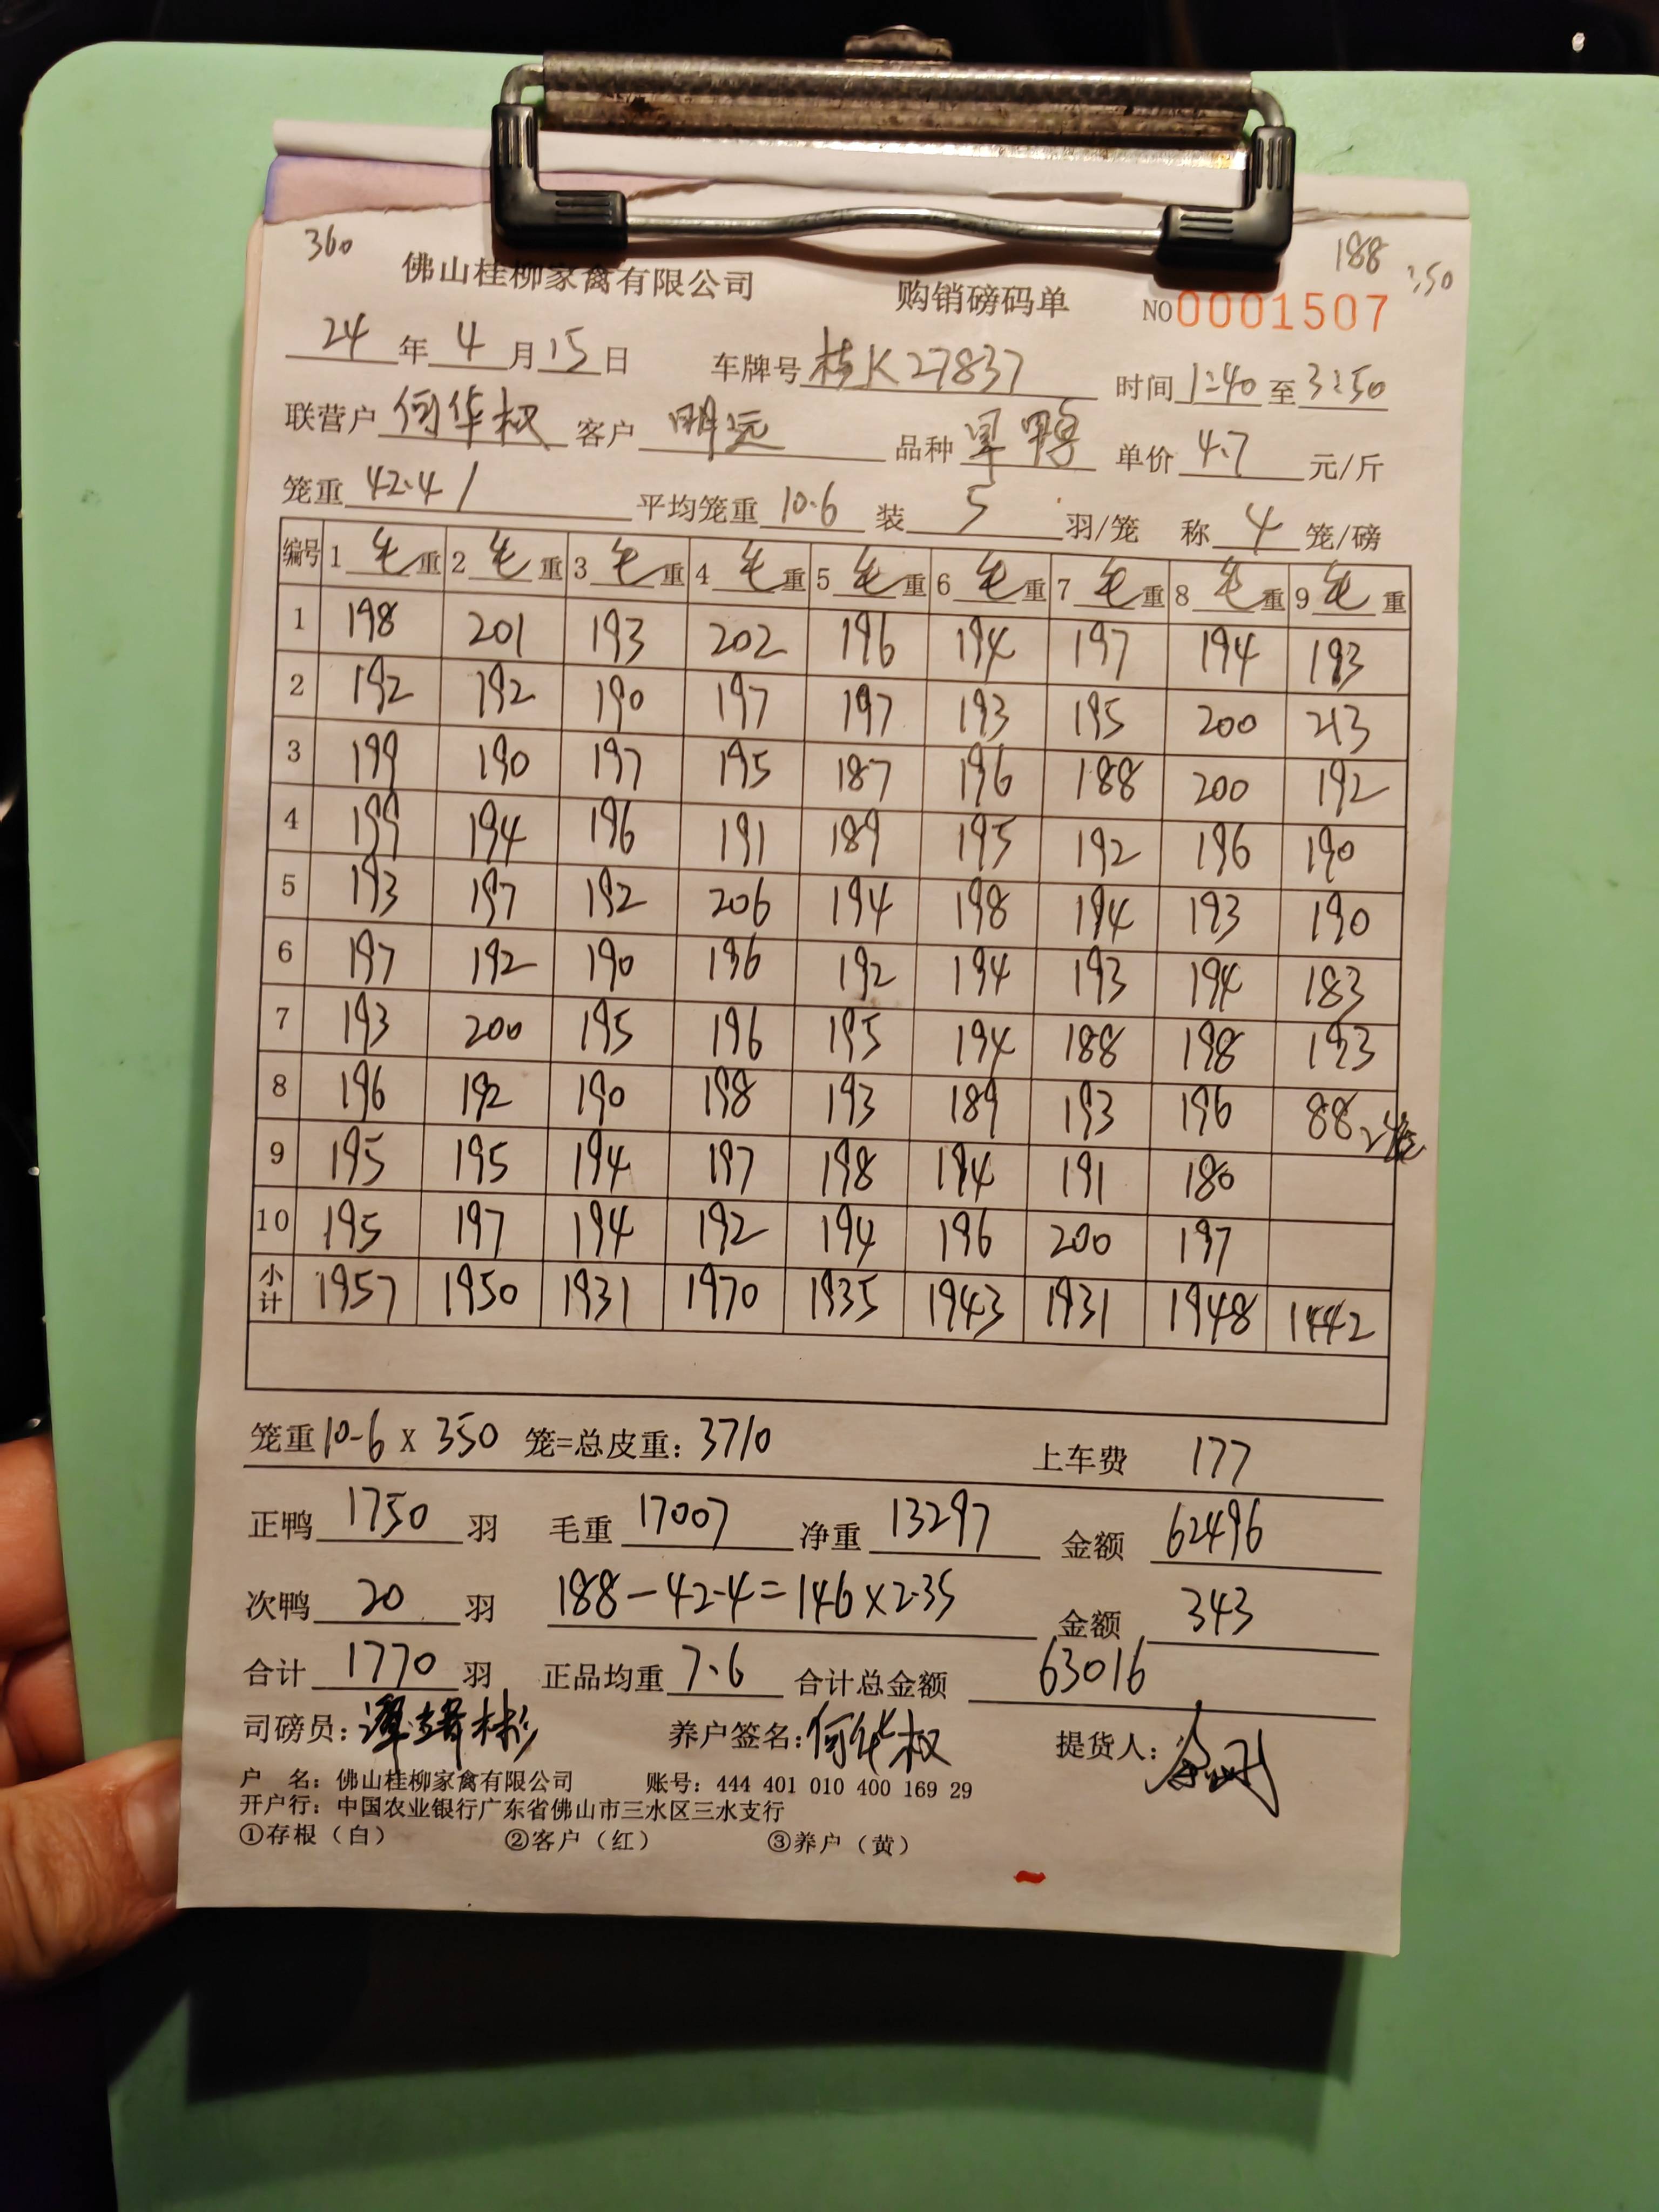 360
188
:50
佛山桂柳家禽有限公司 购销磅码单 NO 0001507
24 年 4 月 15 日 车牌号 桂K27837 时间 1:40 至 3:50
联营户 何华权 客户 明远 品种 旱鸭 单价 4.7 元/斤
笼重 42.4 / 平均笼重 10.6 装 5 羽/笼 称 4 笼/磅
编号 1 毛 重 2 毛 重 3 毛 重 4 毛 重 5 毛 重 6 毛 重 7 毛 重 8 毛 重 9 毛 重
1 198 201 193 202 196 194 197 194 193
2 192 192 190 197 197 193 195 200 213
3 199 190 197 195 187 196 188 200 192
4 199 194 196 191 189 195 192 196 190
5 193 197 192 206 194 198 194 193 190
6 197 192 190 196 192 194 193 194 183
7 193 200 195 196 195 194 188 198 193
8 196 192 190 198 193 189 193 196 88 2笼
9 195 195 194 197 198 194 191 180
10 195 197 194 192 194 196 200 197
小计 1957 1950 1931 1970 1935 1943 1931 1948 1442
笼重 10-6 X 350 笼=总皮重: 3710 上车费 177
正鸭 1750 羽 毛重 17007 净重 13297 金额 62496
次鸭 20 羽 188-42-4=146×2.35 金额 343
合计 1770 羽 正品均重 7.6 合计总金额 63016
司磅员: 养户签名: 何华权 提货人:
户 名: 佛山桂柳家禽有限公司 账号: 444 401 010 400 169 29
开户行: 中国农业银行广东省佛山市三水区三水支行
①存根（白） ②客户（红） ③养户（黄）